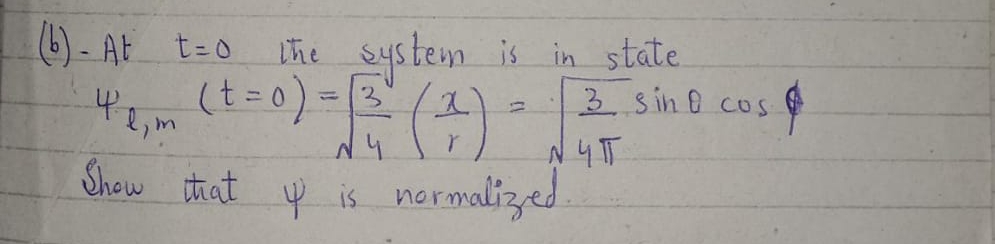 (b) - At t=0 the system is in state
ψ_{l,m} (t=0) = √(3/4) (x/r) = √(3/4π) sin θ cos ϕ
Show that ψ is normalized.